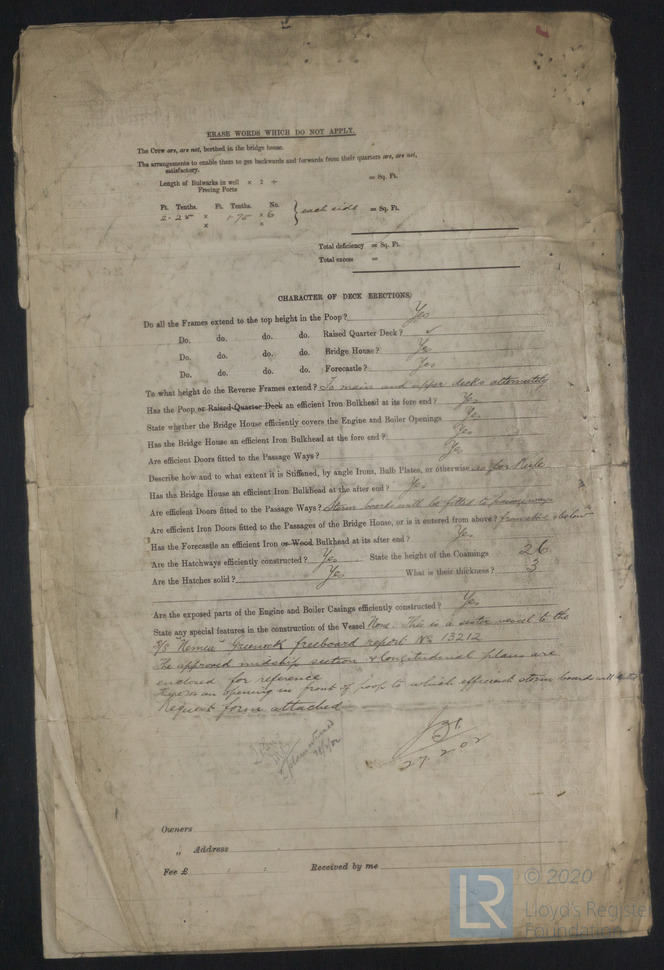 ERASE WORDS WHICH DO NOT APPLY.
The Crew are, are not, berthed in the bridge house.
The arrangements to enable them to get backwards and forwards from their quarters are, are not,
satisfactory.
Length of Bulwarks in well × 2 ÷ = Sq. Ft.
Freeing Ports
Ft. Tenths. Ft. Tenths. No.
2·25 × 1·75 × 6 } each side = Sq. Ft.
× ×
Total deficiency = Sq. Ft.
Total excess =
CHARACTER OF DECK ERECTIONS.
Do all the Frames extend to the top height in the Poop? Yes
Do. do. do. do. Raised Quarter Deck? ✓
Do. do. do. do. Bridge House? Yes
Do. do. do. do. Forecastle? Yes
To what height do the Reverse Frames extend? To main and upper decks alternately
Has the Poop or Raised Quarter Deck an efficient Iron Bulkhead at its fore end? Yes
State whether the Bridge House efficiently covers the Engine and Boiler Openings Yes
Has the Bridge House an efficient Iron Bulkhead at the fore end? Yes
Are efficient Doors fitted to the Passage Ways? Yes
Describe how and to what extent it is Stiffened, by angle Irons, Bulb Plates, or otherwise as per Rule
Has the Bridge House an efficient Iron Bulkhead at the after end? Yes
Are efficient Doors fitted to the Passage Ways? Storm boards will be fitted to passageways
Are efficient Iron Doors fitted to the Passages of the Bridge House, or is it entered from above? from above & below
Has the Forecastle an efficient Iron or Wood Bulkhead at its after end? Yes
Are the Hatchways efficiently constructed? Yes State the height of the Coamings 26
Are the Hatches solid? Yes What is their thickness? 3
Are the exposed parts of the Engine and Boiler Casings efficiently constructed? Yes
State any special features in the construction of the Vessel None. This is a sister vessel to the
S/S "Nemea" Greenock freeboard report No 13212
The approved midship section & longitudinal plans are
enclosed for reference
There is an opening in front of poop to which efficient storm boards will be fitted
Request form attached
27.2.02
Owners
„ Address
Fee £ : : Received by me
LR © 2020
Lloyd's Register
Foundation